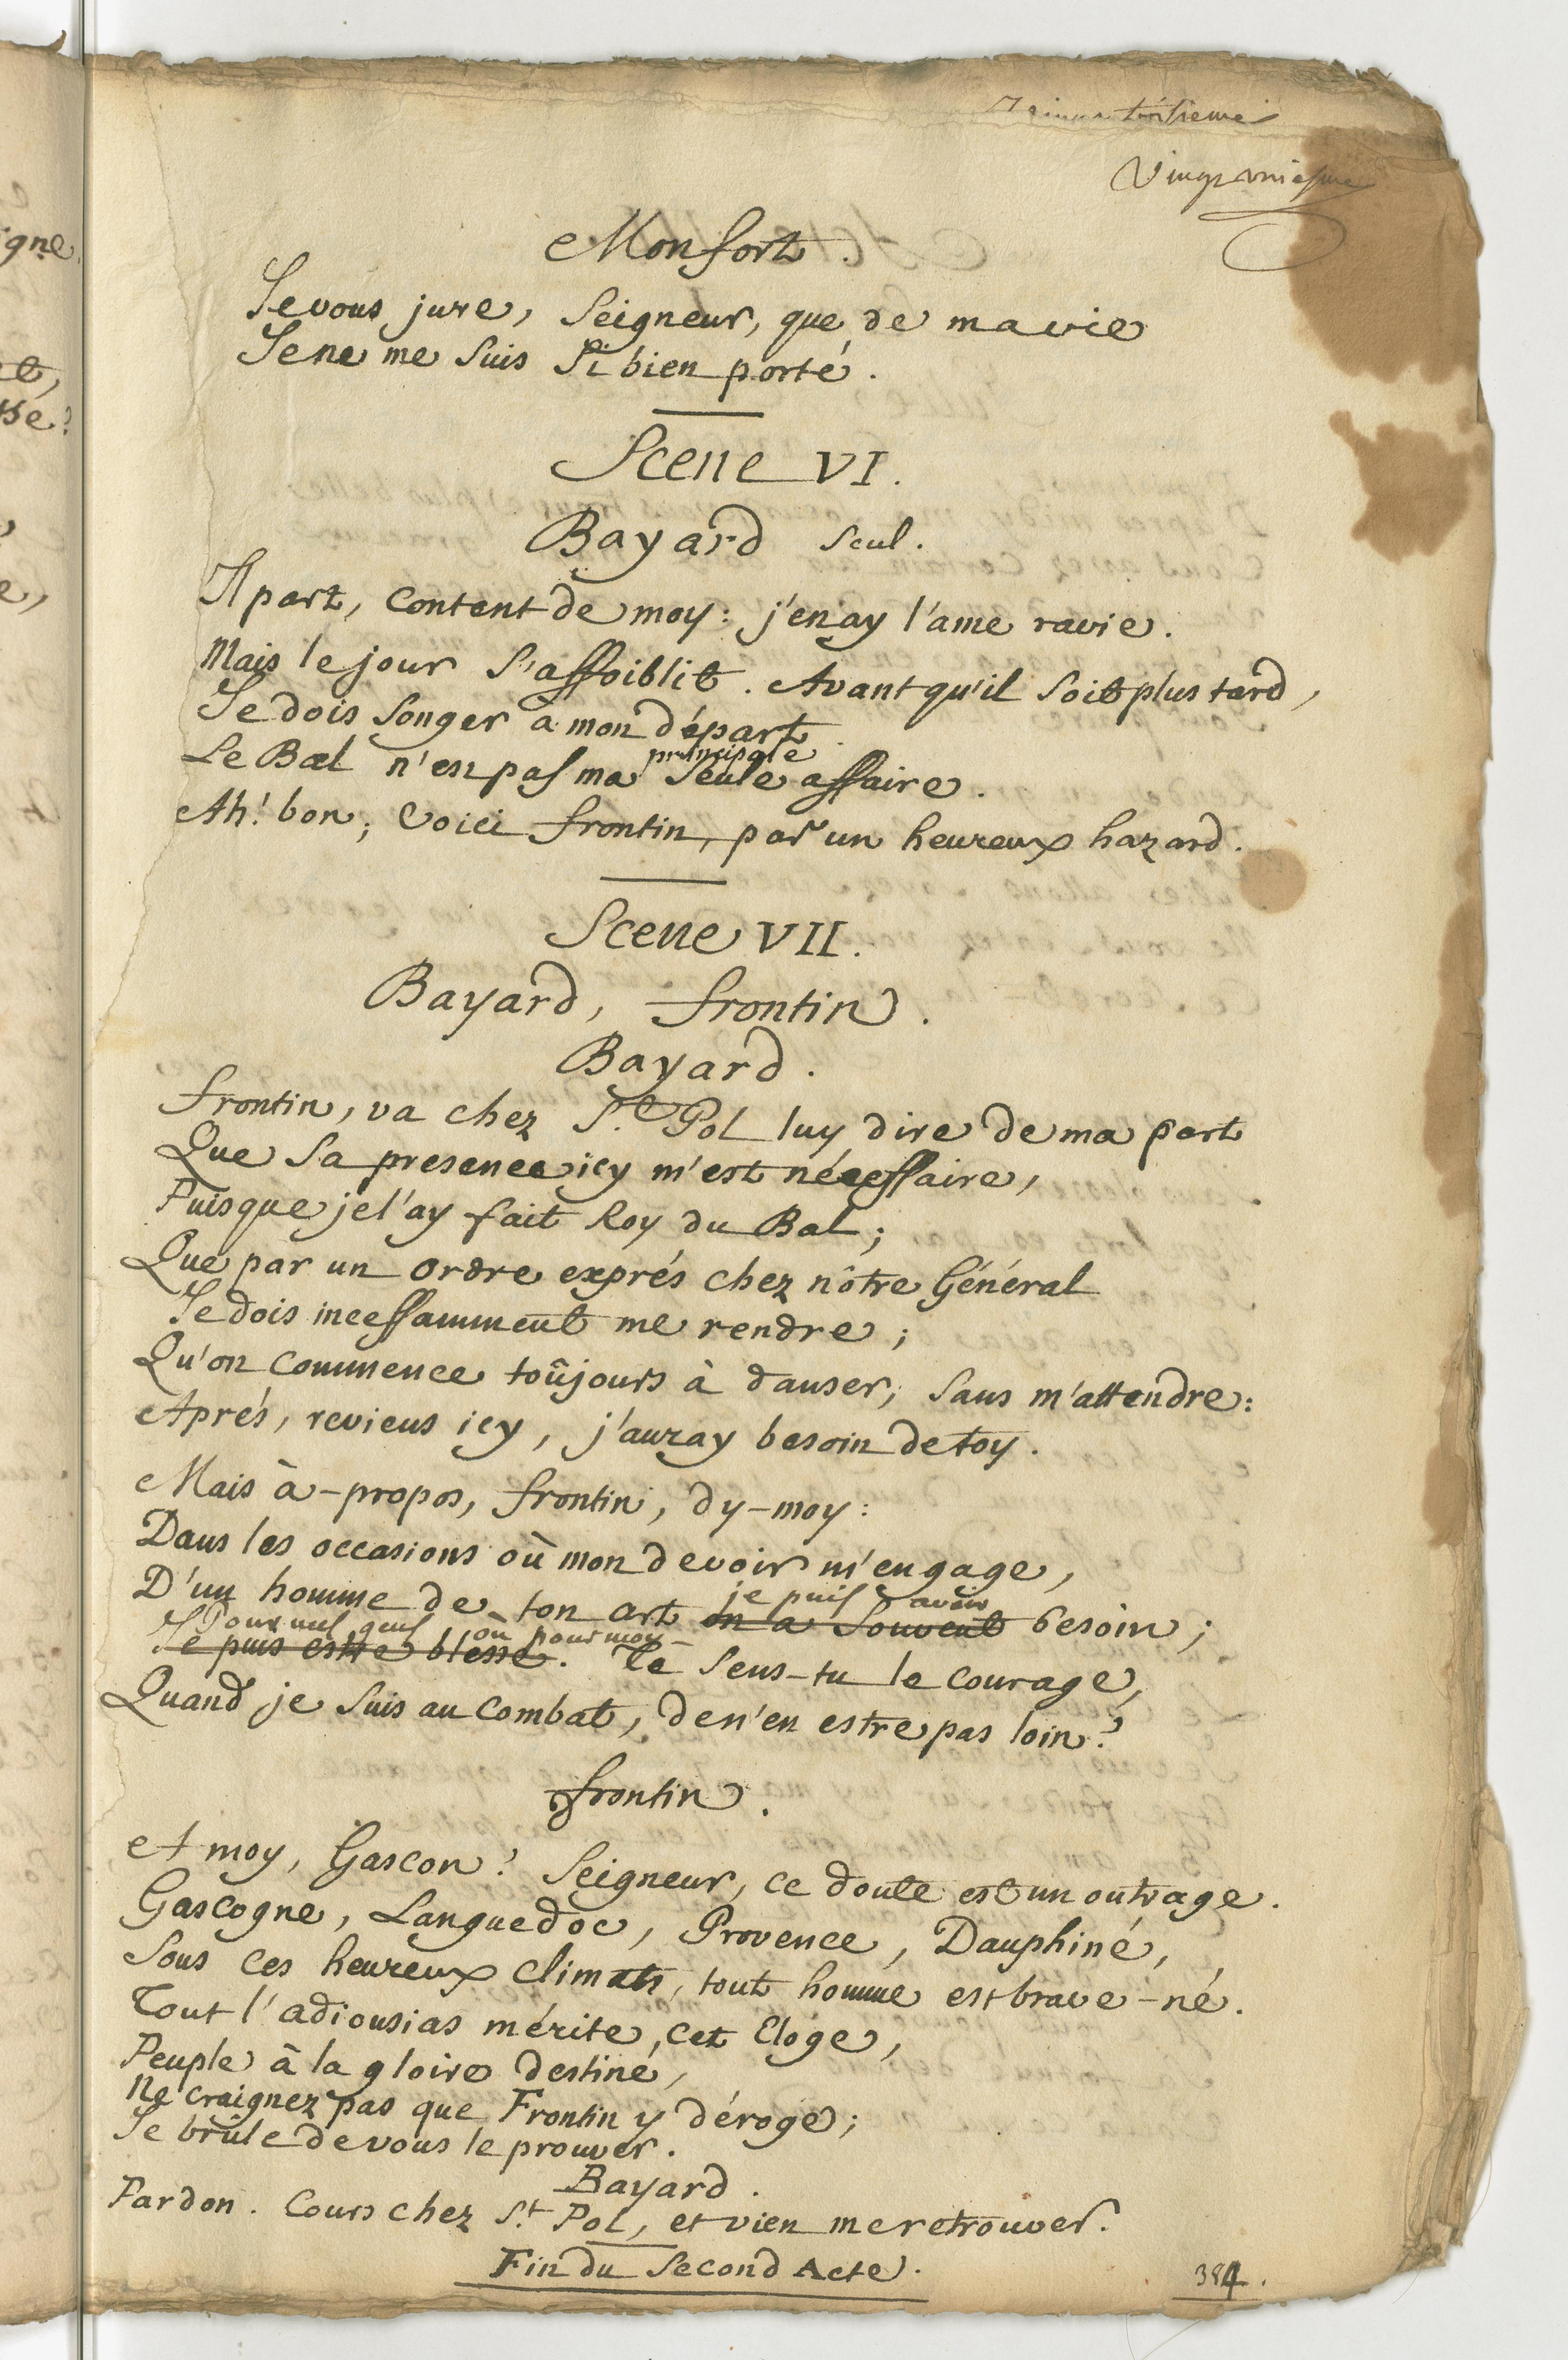 Vingt uniesme
Monfort.
Je vous jure, Seigneur, que de ma vie
Je ne me suis si bien porté.
Scene VI.
Bayard seul.
Il part, content de moy: j'en ay l'ame ravie.
Mais le jour s'affoiblit. Avant qu'il soit plus tard,
Je dois songer a mon départ.
principale
Le Bal n'est pas ma seule affaire.
Ah! bon; voici frontin, par un heureux hazard.
Scene VII.
Bayard, frontin.
Bayard.
frontin, va chez S.t Pol luy dire de ma part
Que sa presence icy m'est nécessaire,
Puisque je l'ay fait Roy du Bal;
Que par un ordre exprés chez nôtre Général
Je dois incessamment me rendre;
Qu'on commence toûjours à danser, sans m'attendre:
Aprés, reviens icy, j'auray besoin de toy.
Mais à-propos, frontin, dy-moy:
Dans les occasions où mon devoir m'engage,
je puis avoir
D'un homme de ton art on a souvent besoin;
Pour mes gens ou pour moy-
Je puis estre blessé. Te sens-tu le courage,
Quand je suis au combat, de n'en estre pas loin?
frontin.
et moy, Gascon? Seigneur, ce doute est un outrage.
Gascogne, Languedoc, Provence, Dauphiné,
Sous ces heureux climats, tout homme est brave-né.
Tout l'adiousias mérite cet Eloge,
Peuple à la gloire destiné,
Ne craignez pas que Frontin y déroge;
Je brûle de vous le prouver.
Bayard.
Pardon. Cours chez S.t Pol, et vien me retrouver.
Fin du Second Acte.
384.